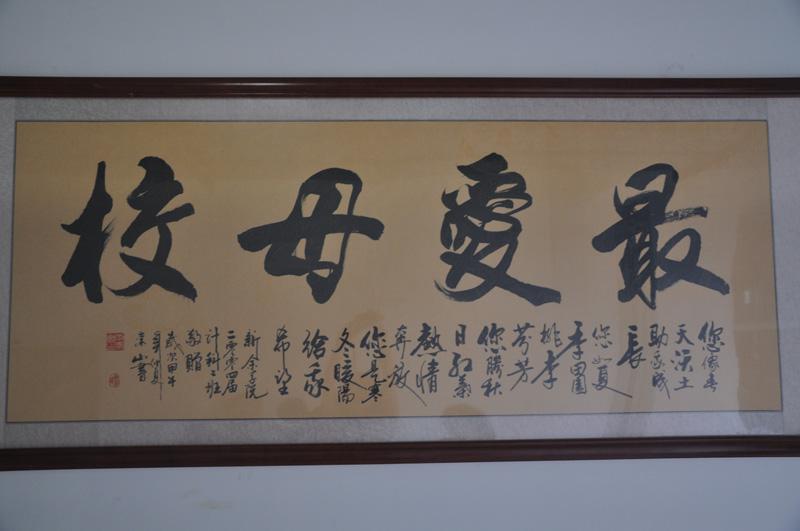 最愛母校
您像春
天沃土
助我成
長
您如夏
季田園
桃李
芬芳
您勝秋
日紅葉
熱情
奔放
您是寒
冬暖陽
給我
希望
新余学院
二零零四届
计科二班
敬贈
歲次甲午